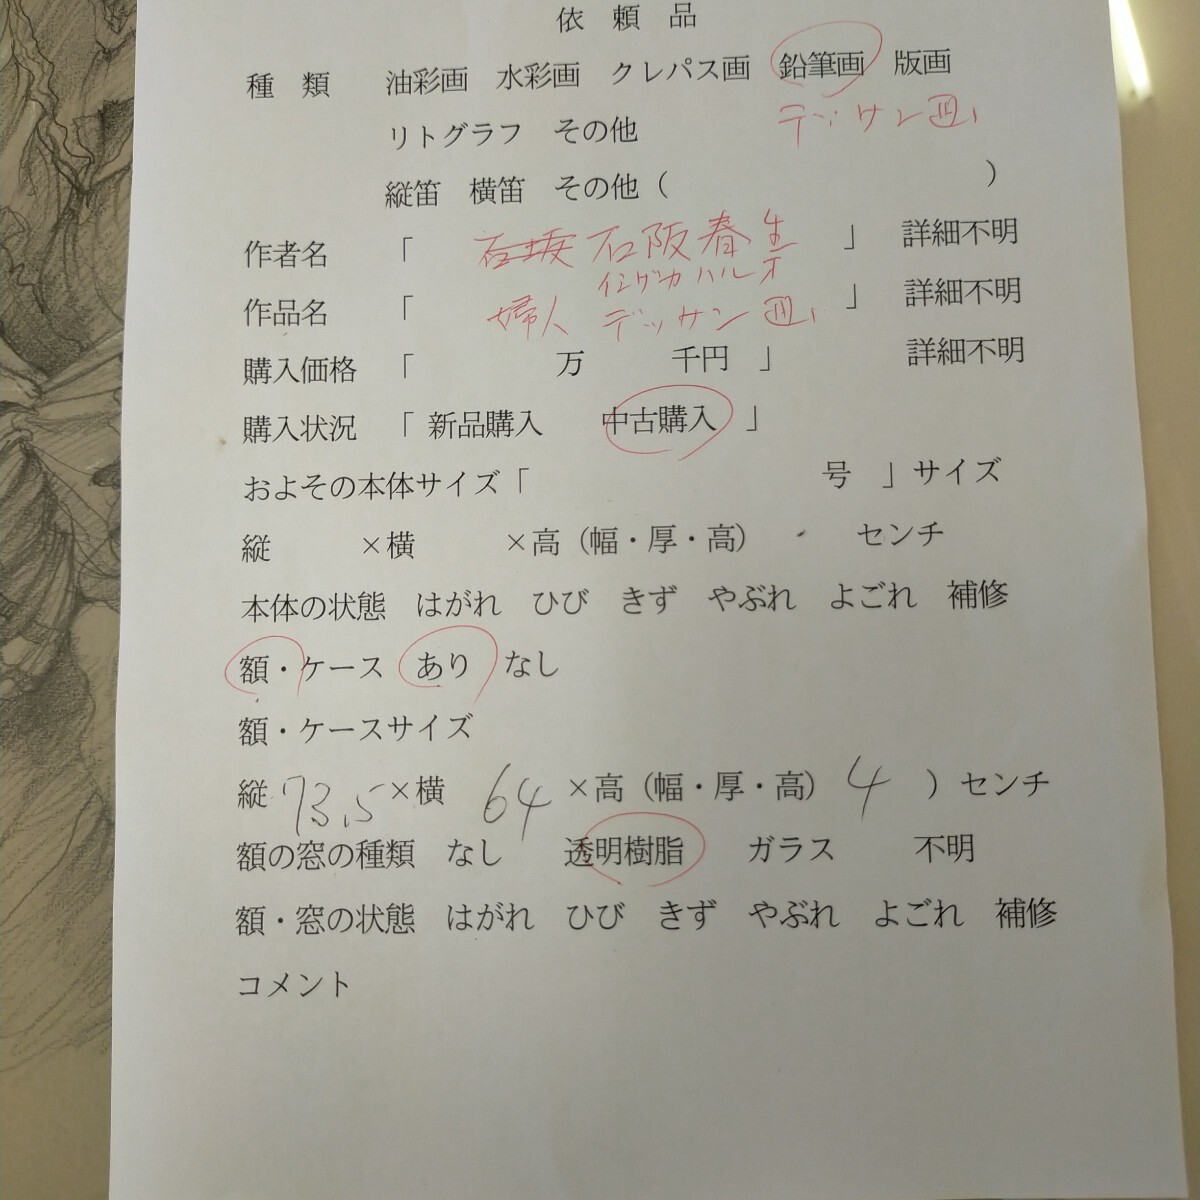 依 頼 品
種 類 油彩画 水彩画 クレパス画 鉛筆画 版画
デッサン画
リトグラフ その他
縦笛 横笛 その他( )
作者名 「 石坂 石阪春生 」 詳細不明
イシザカ ハルオ
作品名 「 婦人 デッサン画 」 詳細不明
購入価格 「 万 千円 」 詳細不明
購入状況 「 新品購入 中古購入 」
およその本体サイズ「 号 」サイズ
縦 ×横 ×高(幅・厚・高) センチ
本体の状態 はがれ ひび きず やぶれ よごれ 補修
額・ケース あり なし
額・ケースサイズ
縦 73.5 ×横 64 ×高(幅・厚・高) 4 )センチ
額の窓の種類 なし 透明樹脂 ガラス 不明
額・窓の状態 はがれ ひび きず やぶれ よごれ 補修
コメント